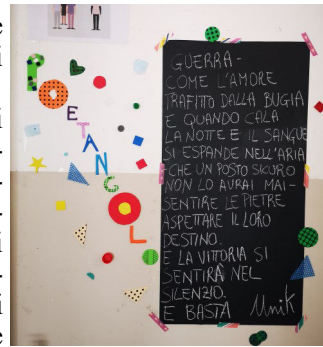 POETANGOL
GUERRA-
COME L'AMORE
TRAFITTO DALLA BUGIA
E QUANDO CALA
LA NOTTE E IL SANGUE
SI ESPANDE NELL'ARIA
CHE UN POSTO SICURO
NON LO AVRAI MAI-
SENTIRE LE PIETRE
ASPETTARE IL LORO
DESTINO.
E LA VITTORIA SI
SENTIRÀ NEL
SILENZIO.
E BASTA Unik